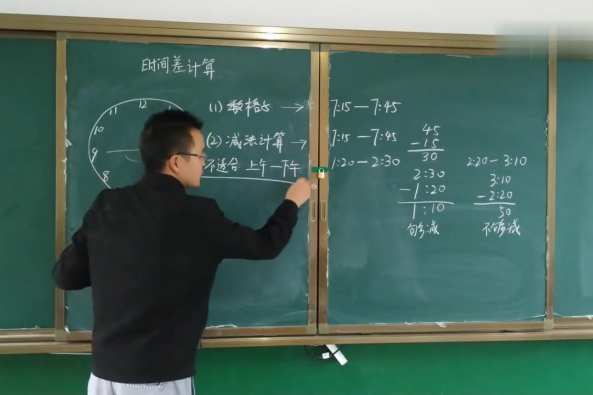 时间差计算
11
12
10
9
8
(1) 数格法 →
(2) 减法计算 →
不适合 上午—下午
7:15—7:45
7:15—7:45
1:20—2:30
45
-15
30
2:30
-1:20
1:10
够减
2:20-3:10
3:10
-2:20
50
不够减